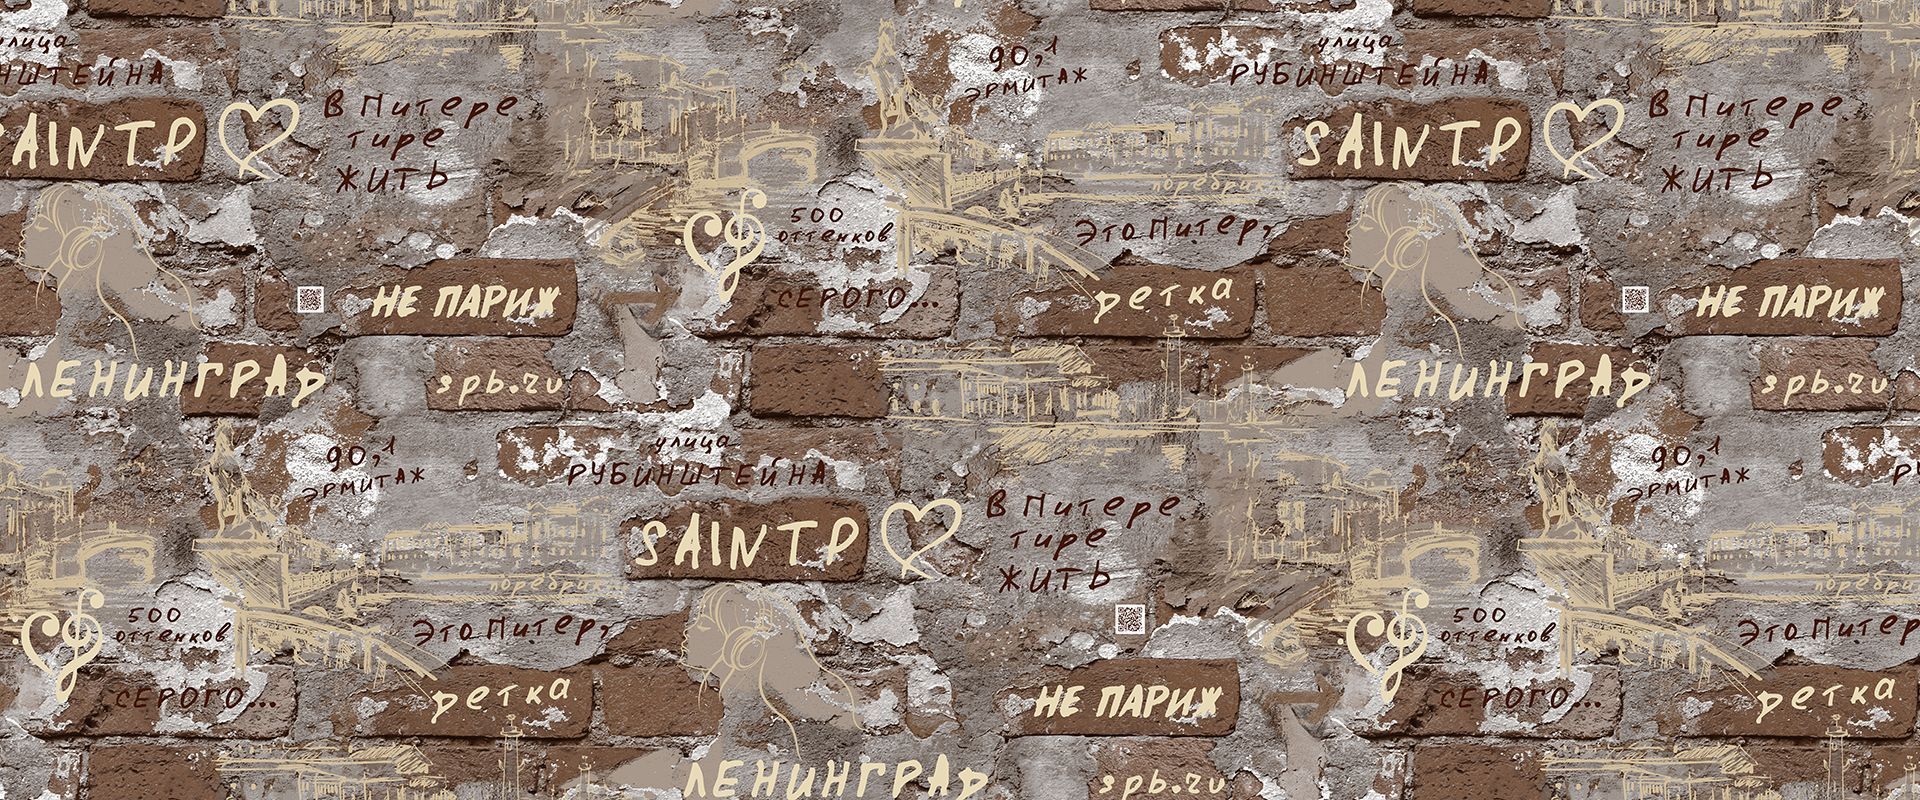 улица
НШТЕЙНА
SAINTP
В Питере
тире
ЖИТЬ
90,1
ЭРМИТАЖ
улица
РУБИНШТЕЙНА
SAINTP
В Питере
тире
ЖИТЬ
поребрик
500
оттенков
СЕРОГО...
Это Питер,
детка
НЕ ПАРИЖ
НЕ ПАРИЖ
ЛЕНИНГРАД
spb.ru
ЛЕНИНГРАД
spb.ru
90,1
ЭРМИТАЖ
улица
РУБИНШТЕЙНА
90,1
ЭРМИТАЖ
SAINTP
В Питере
тире
ЖИТЬ
поребрик
поребрик
500
оттенков
СЕРОГО...
Это Питер,
детка
500
оттенков
СЕРОГО...
Это Питер
детка
НЕ ПАРИЖ
ЛЕНИНГРАД
spb.ru